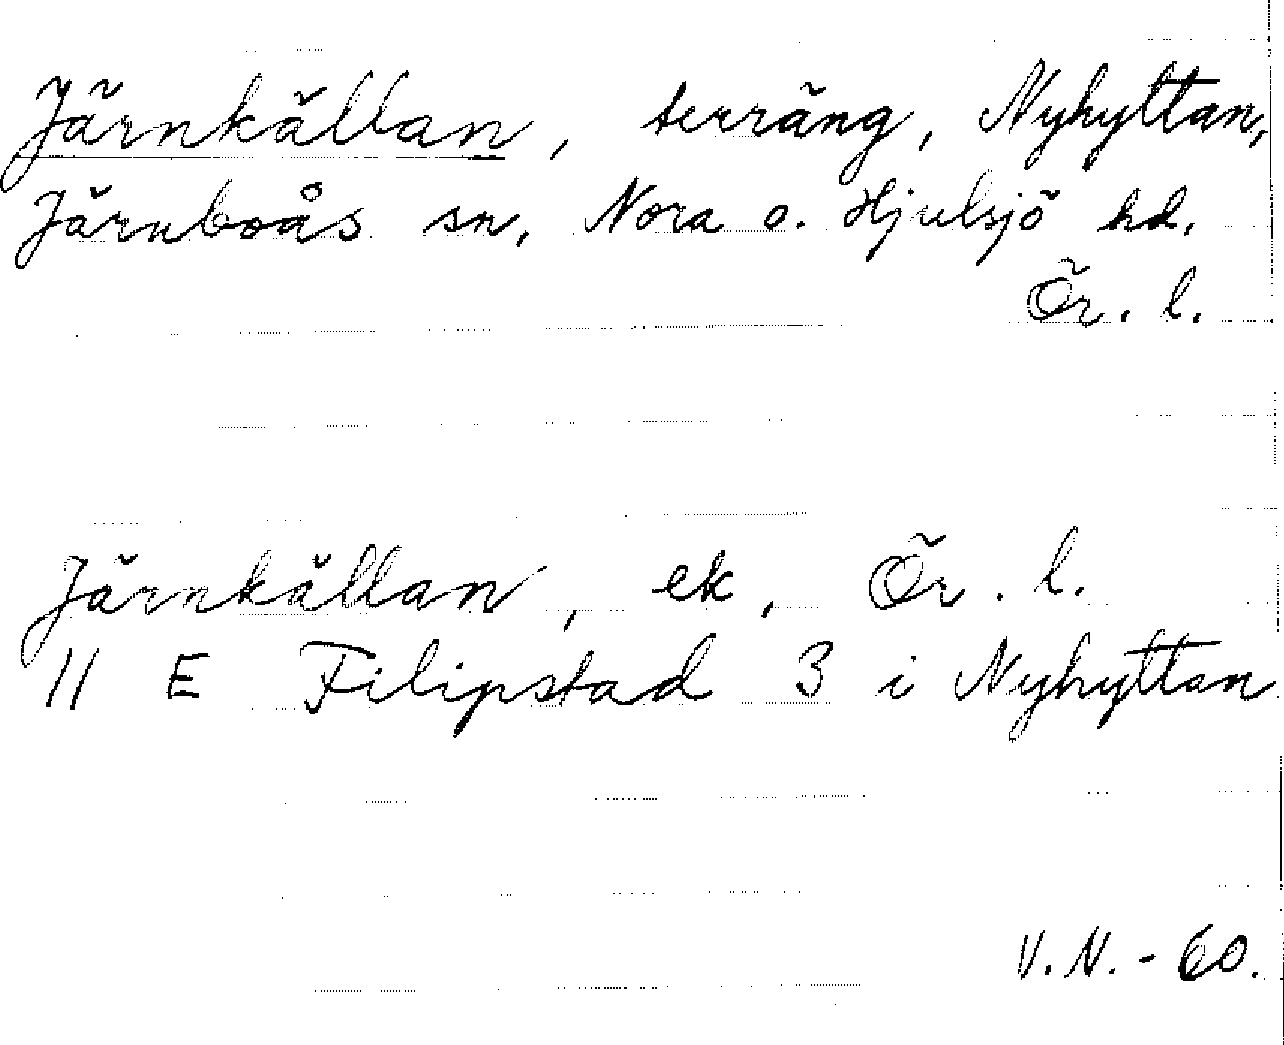 Järnkällan, terräng, Nyhyttan,
Järnboås sn, Nora o. Hjulsjö hd.
Ör. l.
Järnkällan, ek, Ör. l.
11 E Filipstad 3 i Nyhyttan
V.N. - 60.